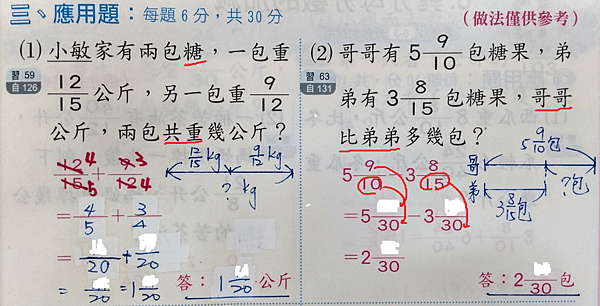 三、應用題：每題 6 分，共 30 分
（做法僅供參考）
(1) 小敏家有兩包糖，一包重
習 59
自 126
12/15 公斤，另一包重 9/12
公斤，兩包共重幾公斤？
12/15 kg 9/12 kg
? kg
12 4/15 5 + 9 3/12 4
= 4/5 + 3/4
= /20 + /20
= /20 = 1 /20
答：1 /20 公斤
(2) 哥哥有 5 9/10 包糖果，弟
習 63
自 131
弟有 3 8/15 包糖果，哥哥
比弟弟多幾包？
5 9/10 包
哥
弟
?包
3 8/15 包
5 9/10 - 3 8/15
= 5 /30 - 3 /30
= 2 /30
答：2 /30 包